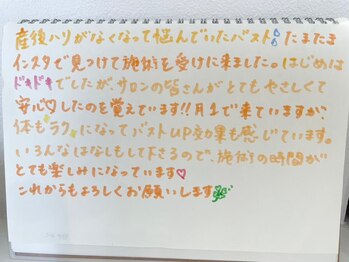 産後ハリがなくなって悩んでいたバスト💧たまたま
インスタで見つけて施術を受けに来ました。はじめは
ドキドキでしたがサロンの皆さんがとてもやさしくて
安心♡したのを覚えています!!月1で来ていますが、
体もラクになってバストUP効果も感じています。
いろんなはなしもして下さるので、施術の時間が
とても楽しみになっています♡
これからもよろしくお願いします